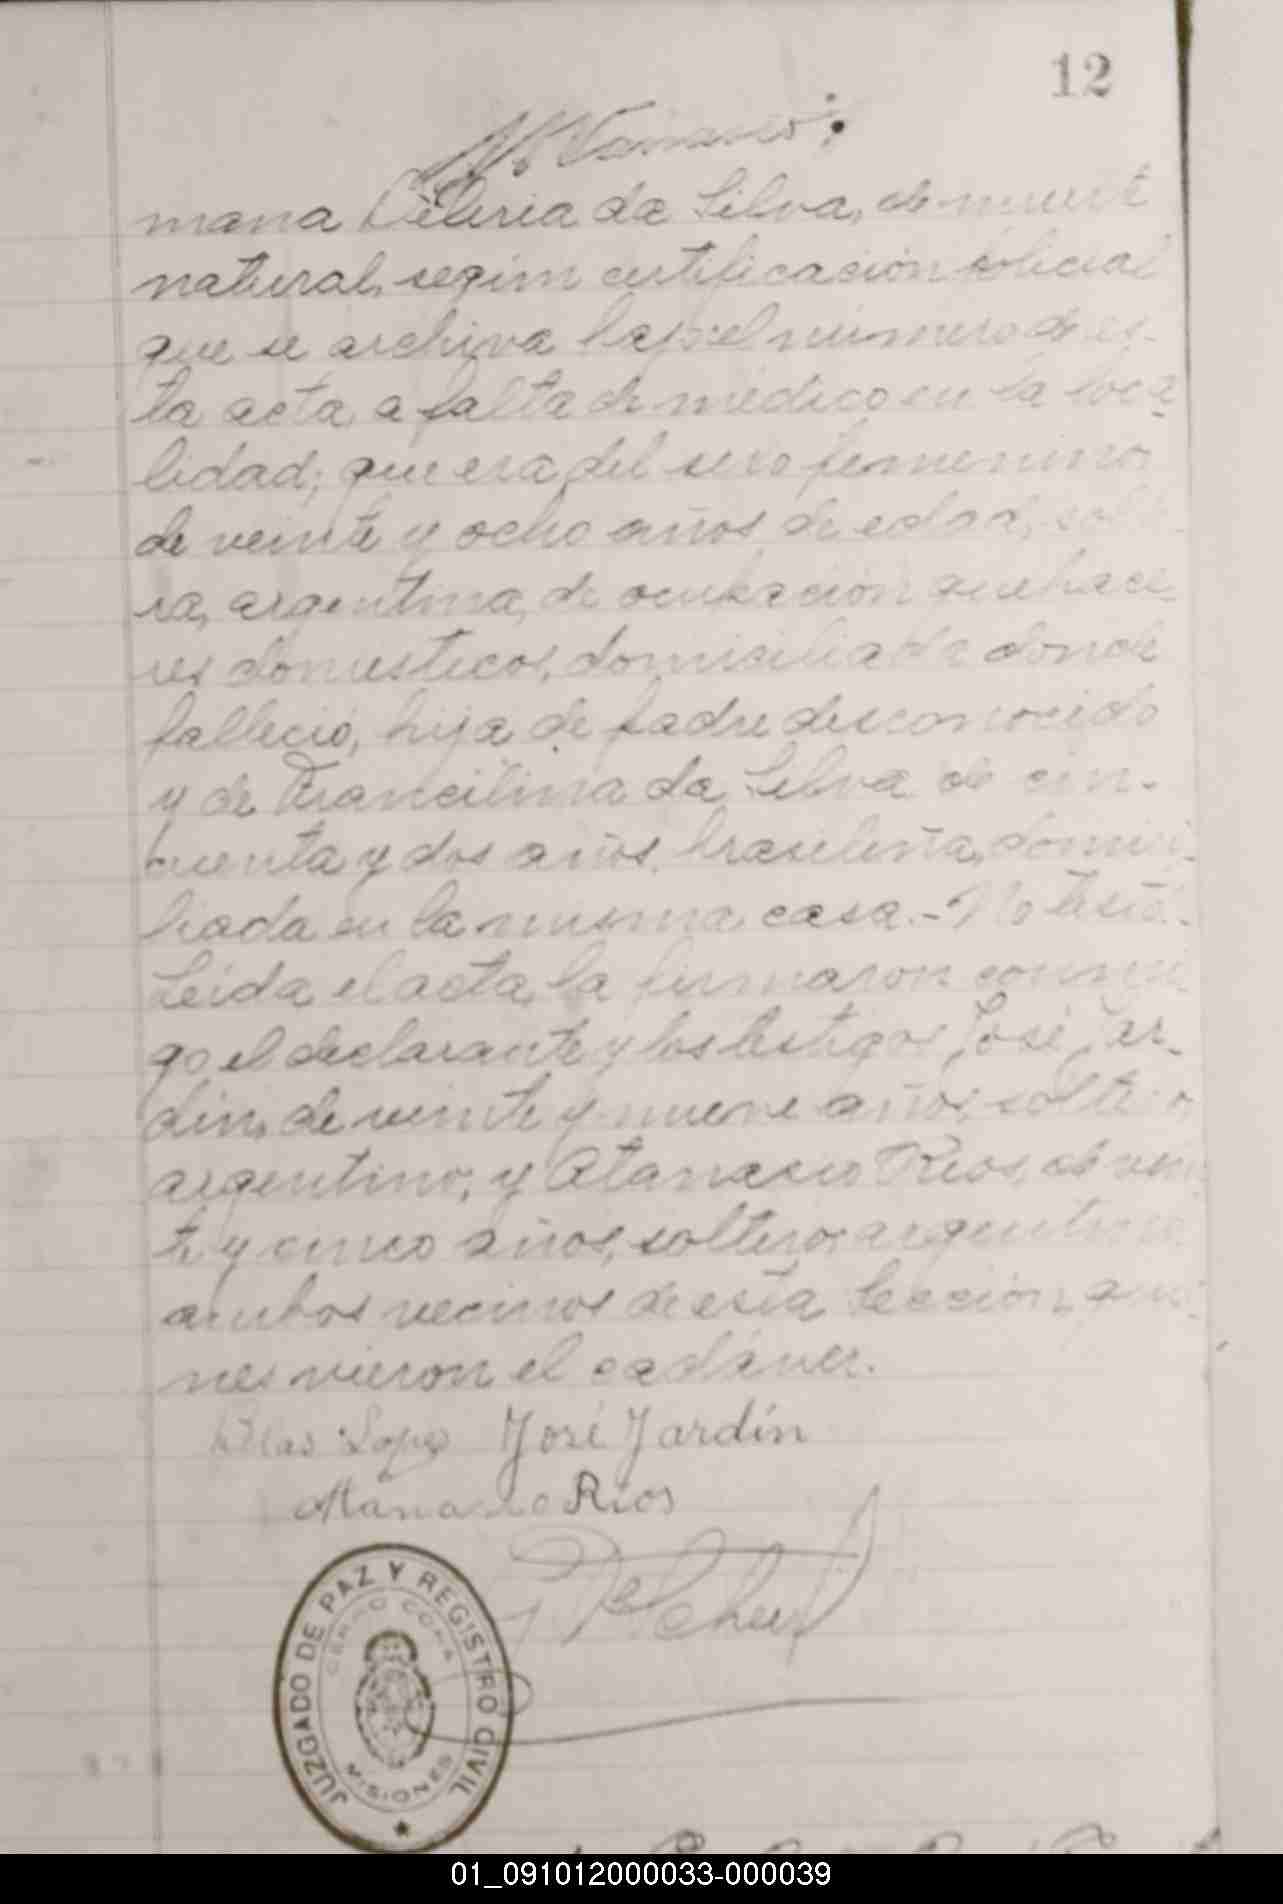 12
mana Celeria da Silva, de muerte
natural, según certificación policial
que se archiva bajo el número de es-
ta acta, a falta de médico en la loca
lidad; que era del sexo femenino,
de veinte y ocho años de edad, solte
ra, argentina, de ocupación quehace
res domesticos, domiciliada donde
falleció, hija de padre desconocido
y de Francilina da Silva de cin-
cuenta y dos años, brasileña, domici-
liada en la misma casa.- No testó.-
Leída el acta, la firmaron conmi
go el declarante y los testigos José Jar-
din, de veinte y nueve años, soltero,
argentino, y Atanasio Rios, de vein
te y cinco años, soltero, argentino
ambos vecinos de esta Sección, quie-
nes vieron el cadáver.
Blas Lopez José Jardín
Atanasio Rios
JUZGADO DE PAZ Y REGISTRO CIVIL
CERRO CORA
MISIONES
01_091012000033-000039